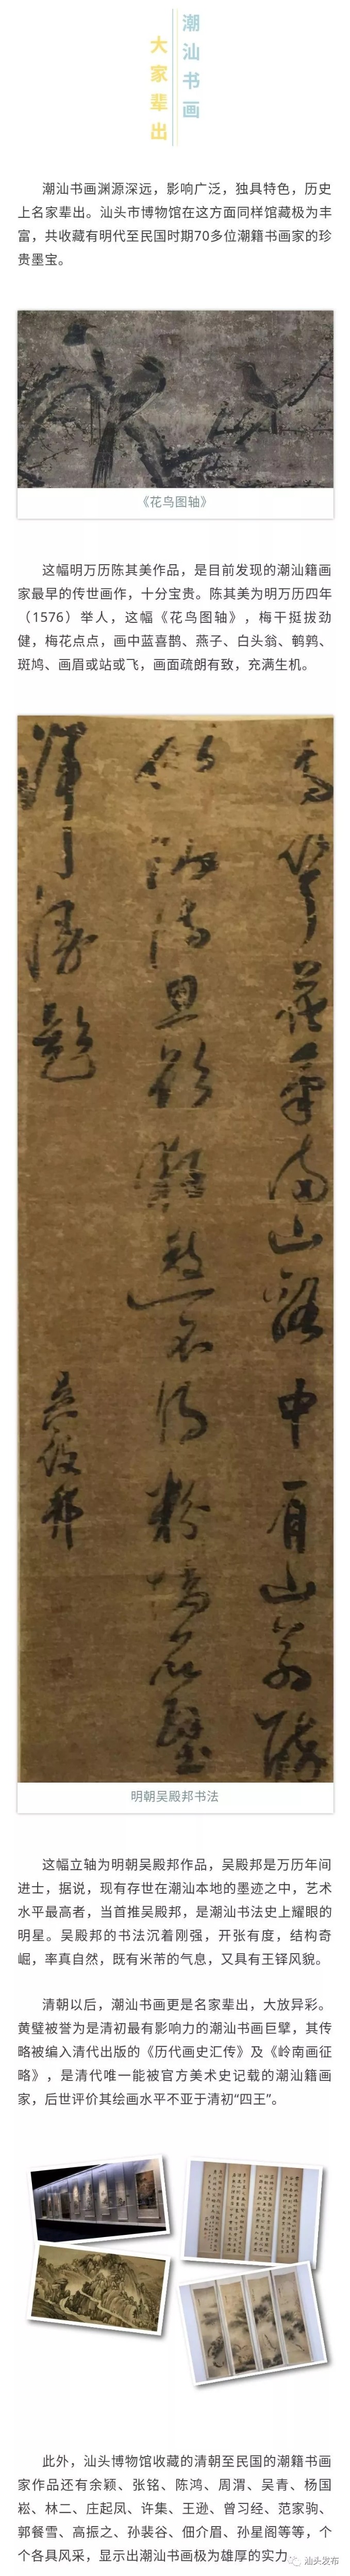 潮汕书画
大家辈出
潮汕书画渊源深远，影响广泛，独具特色，历史
上名家辈出。汕头市博物馆在这方面同样馆藏极为丰
富，共收藏有明代至民国时期70多位潮籍书画家的珍
贵墨宝。
《花鸟图轴》
这幅明万历陈其美作品，是目前发现的潮汕籍画
家最早的传世画作，十分宝贵。陈其美为明万历四年
（1576）举人，这幅《花鸟图轴》，梅干挺拔劲
健，梅花点点，画中蓝喜鹊、燕子、白头翁、鹌鹑、
斑鸠、画眉或站或飞，画面疏朗有致，充满生机。
山
中
山
吴殿邦
明朝吴殿邦书法
这幅立轴为明朝吴殿邦作品，吴殿邦是万历年间
进士，据说，现有存世在潮汕本地的墨迹之中，艺术
水平最高者，当首推吴殿邦，是潮汕书法史上耀眼的
明星。吴殿邦的书法沉着刚强，开张有度，结构奇
崛，率真自然，既有米芾的气息，又具有王铎风貌。
清朝以后，潮汕书画更是名家辈出，大放异彩。
黄璧被誉为是清初最有影响力的潮汕书画巨擘，其传
略被编入清代出版的《历代画史汇传》及《岭南画征
略》，是清代唯一能被官方美术史记载的潮汕籍画
家，后世评价其绘画水平不亚于清初“四王”。
此外，汕头博物馆收藏的清朝至民国的潮籍书画
家作品还有余颖、张铭、陈鸿、周渭、吴青、杨国
崧、林二、庄起凤、许集、王逊、曾习经、范家驹、
郭餐雪、高振之、孙裴谷、佃介眉、孙星阁等等，个
个各具风采，显示出潮汕书画极为雄厚的实力。
汕头发布